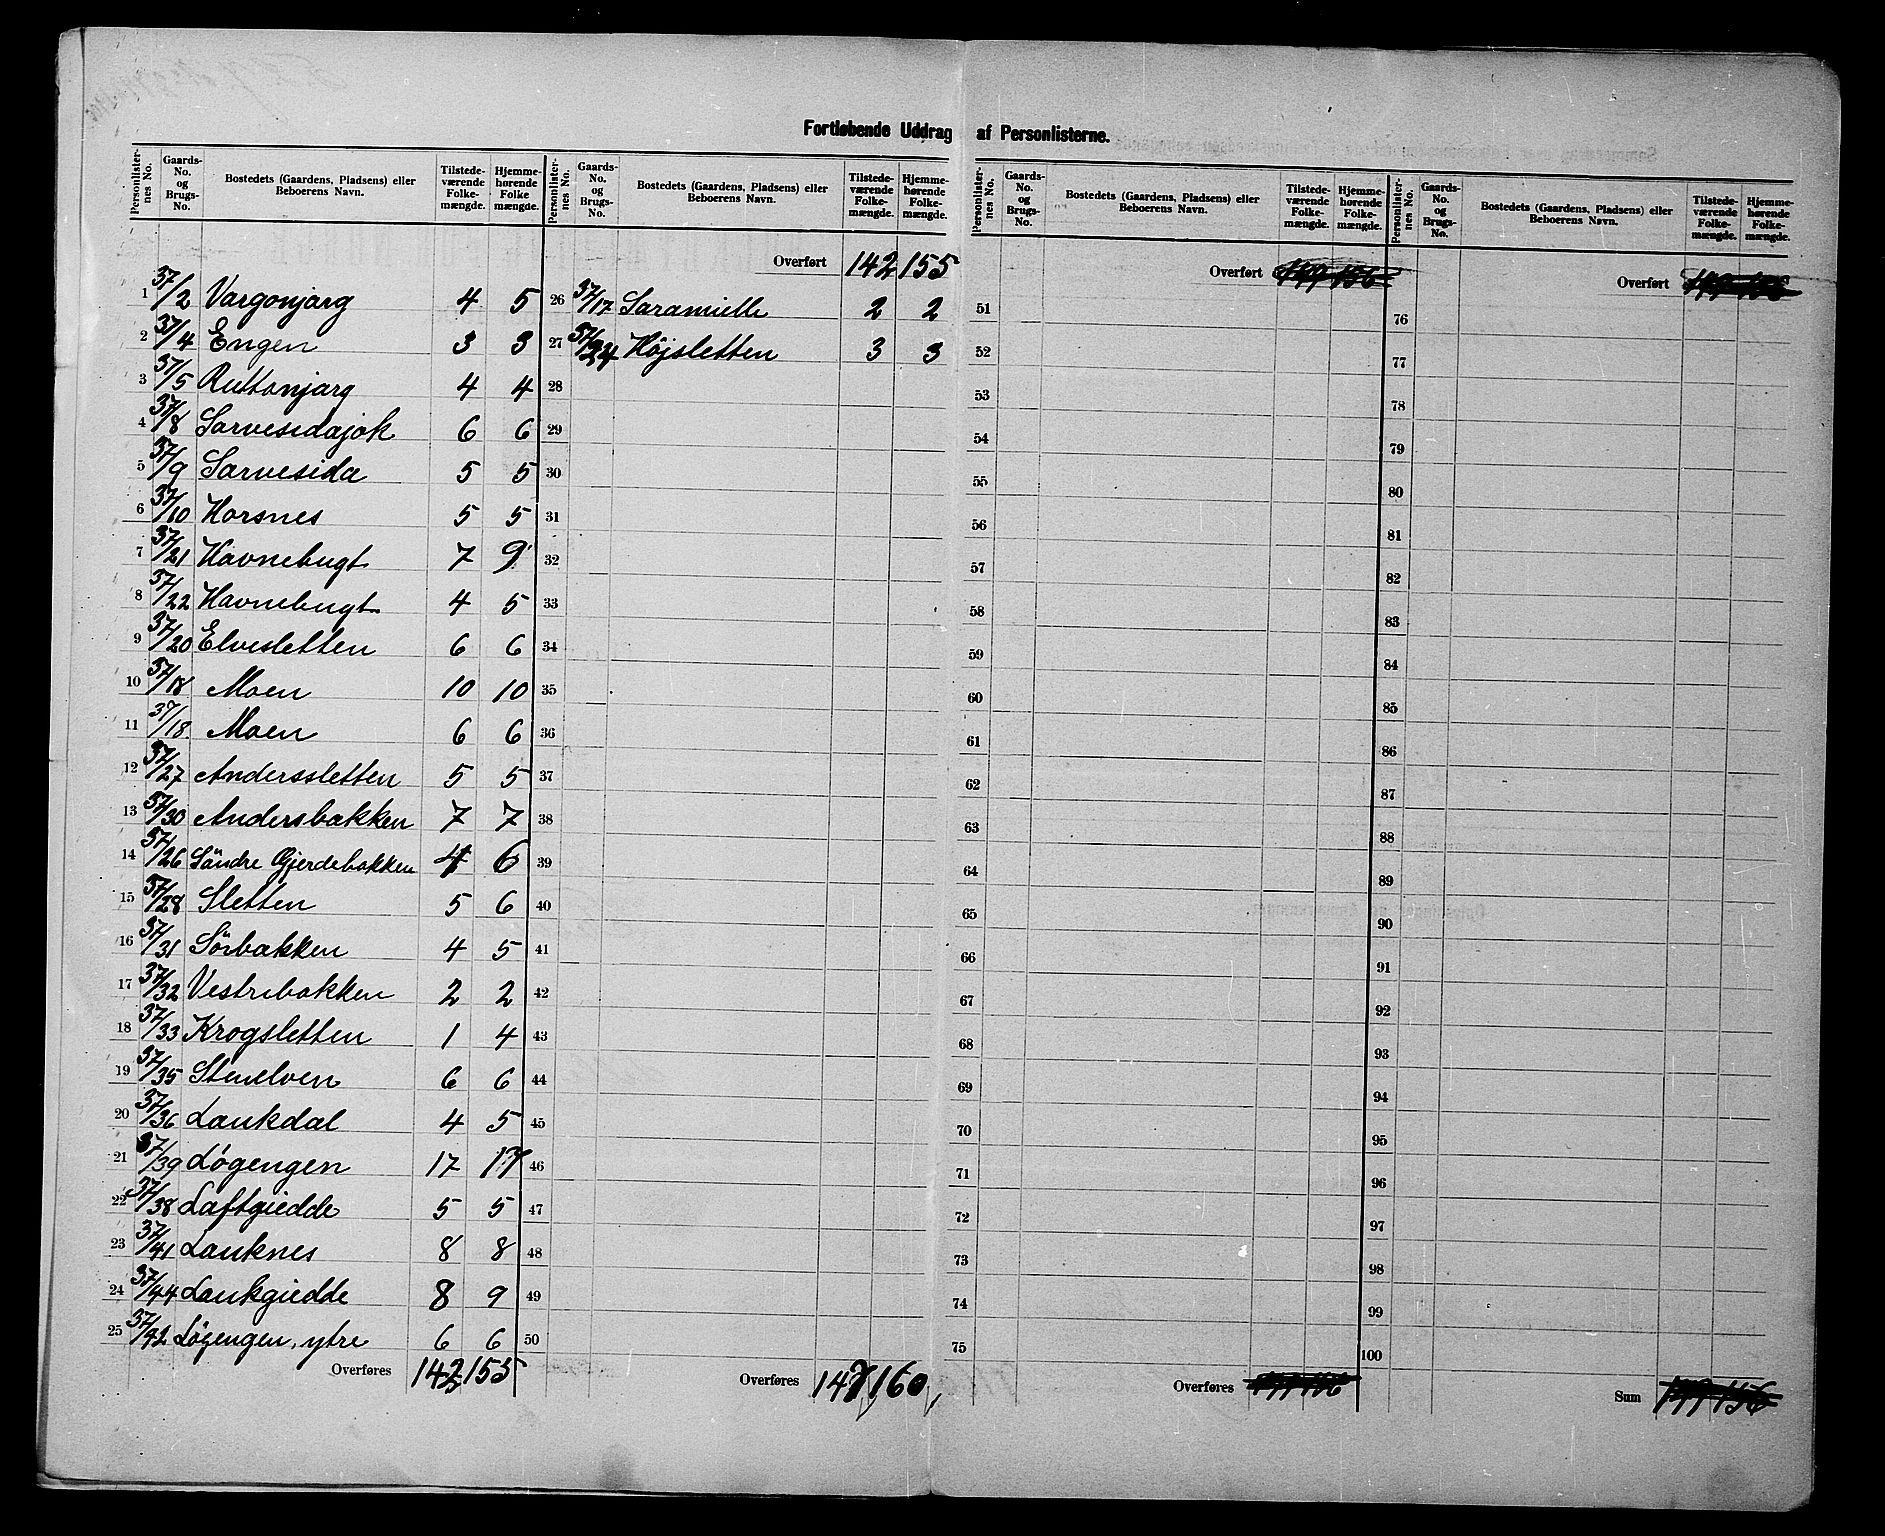 Fortløbende Uddrag af Personlisternе.
Personlister-nes No. Gaards-No. og Brugs-No. Bostedets (Gaardens, Pladsens) eller Beboerens Navn. Tilstede-værende Folke-mængde. Hjemme-hørende Folke mængde.
1 37/2 Vargonjarg 4 5
2 37/4 Engen 3 3
3 37/5 Ruttonjarg 4 4
4 37/8 Sarvesidajok 6 6
5 37/9 Sarvesida 5 5
6 37/10 Horsnes 5 5
7 37/21 Havnebugt 7 9
8 37/22 Havnebugt 4 5
9 37/20 Elvesletten 6 6
10 37/18 Moen 10 10
11 37/18 Moen 6 6
12 37/27 Anderssletten 5 5
13 37/30 Andersbakken 7 7
14 37/26 Söndre Gjerdebakken 4 6
15 37/28 Sletten 5 6
16 37/31 Sörbakken 4 5
17 37/32 Vestrebakken 2 2
18 37/33 Krogsletten 1 4
19 37/35 Stenelven 6 6
20 37/36 Laukdal 4 5
21 37/39 Løgengen 17 17
22 37/38 Laftgiedde 5 5
23 37/41 Lauknes 8 8
24 37/44 Laukgiedde 8 9
25 37/42 Løgengen, ytre 6 6
Overføres 142 155
Personlister-nes No. Gaards-No. og Brugs-No. Bostedets (Gaardens, Pladsens) eller Beboerens Navn. Tilstede-værende Folke-mængde. Hjemme-hørende Folke-mængde.
Overført 142 155
26 37/17 Saramielle 2 2
27 37/24 Højsletten 3 3
28
29
30
31
32
33
34
35
36
37
38
39
40
41
42
43
44
45
46
47
48
49
50
Overføres 147 160
Personlister-nes No. Gaards-No. og Brugs-No. Bostedets (Gaardens, Pladsens) eller Beboerens Navn. Tilstede-værende Folke-mængde. Hjemme-hørende Folke-mængde.
Overført
51
52
53
54
55
56
57
58
59
60
61
62
63
64
65
66
67
68
69
70
71
72
73
74
75
Overføres
Personlister-nes No. Gaards-No. og Brugs-No. Bostedets (Gaardens, Pladsens) eller Beboerens Navn. Tilstede-værende Folke-mængde. Hjemme-hørende Folke-mængde.
Overført
76
77
78
79
80
81
82
83
84
85
86
87
88
89
90
91
92
93
94
95
96
97
98
99
100
Sum